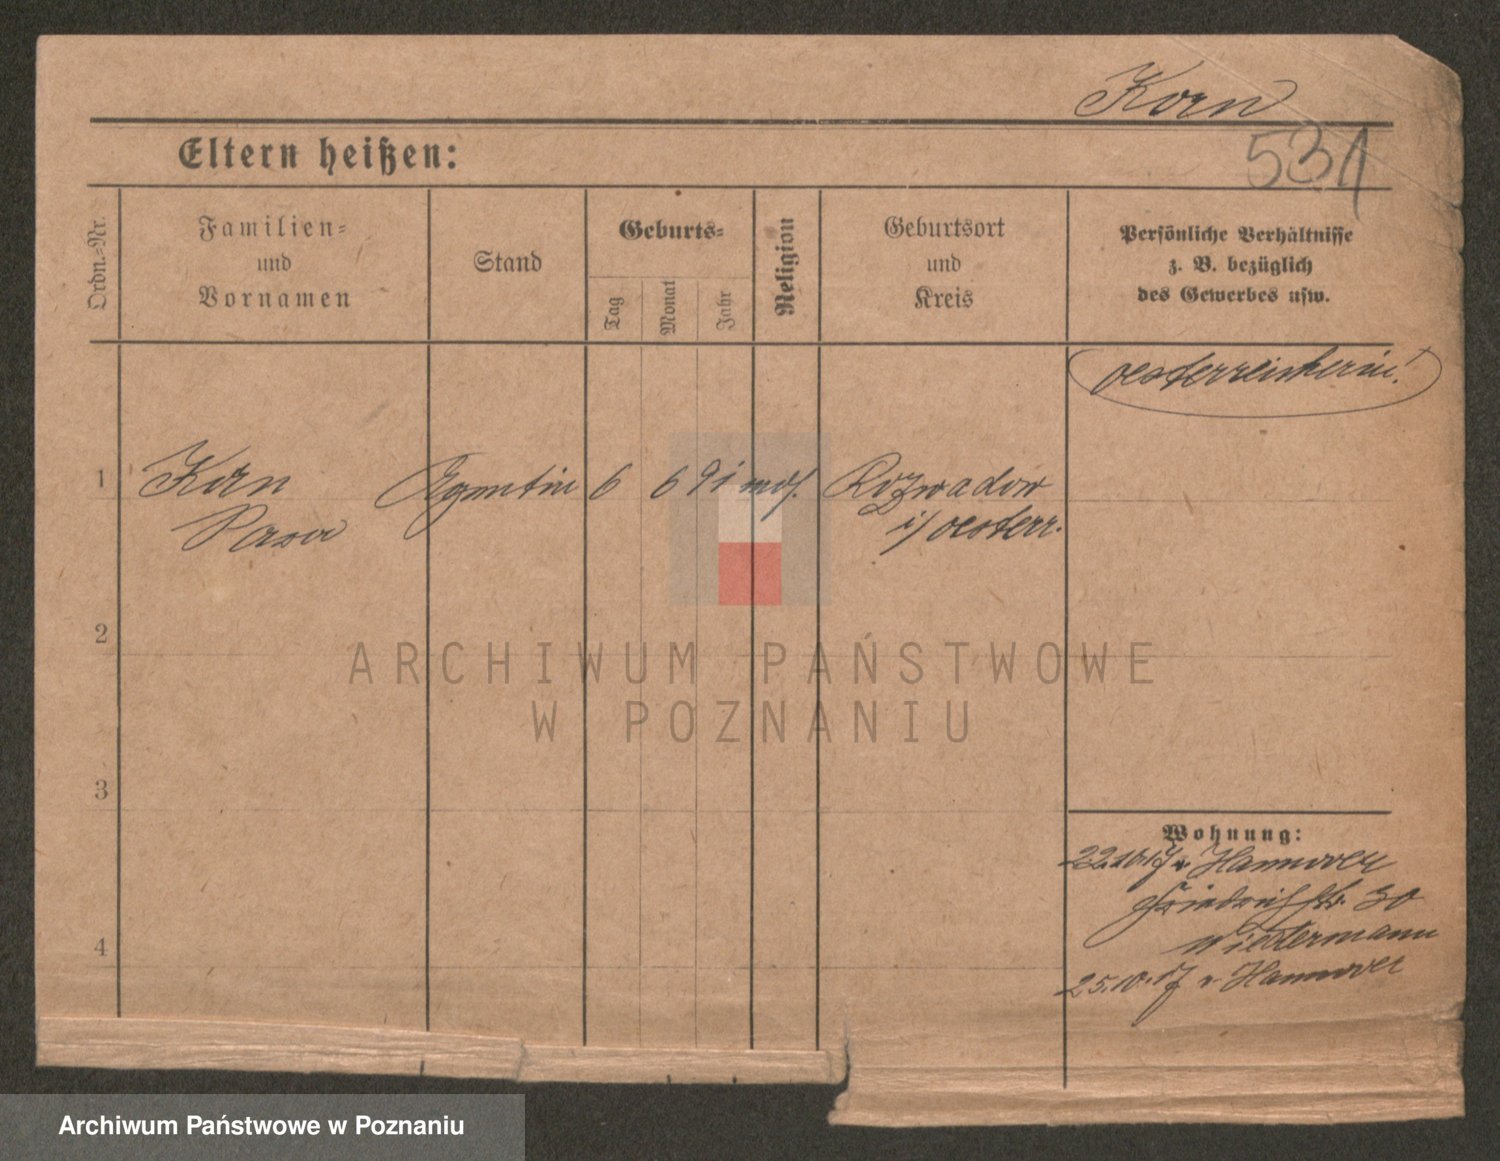 Korn
Eltern heißen:
531
Ordn.-Nr.
Familien-
und
Vornamen
Stand
Geburts-
Tag
Monat
Jahr
Religion
Geburtsort
und
Kreis
Persönliche Verhältnisse
z. B. bezüglich
des Gewerbes usw.
oesterreicherin!
1 Korn Agentin 6 6 91 mos. Rozwadow
i/ oesterr.
2
3
4
Wohnung:
22.10.17 v. Hannover
Friedrichstr. 30
25.10.17 v Hannover
ARCHIWUM PAŃSTWOWE
W POZNANIU
Archiwum Państwowe w Poznaniu